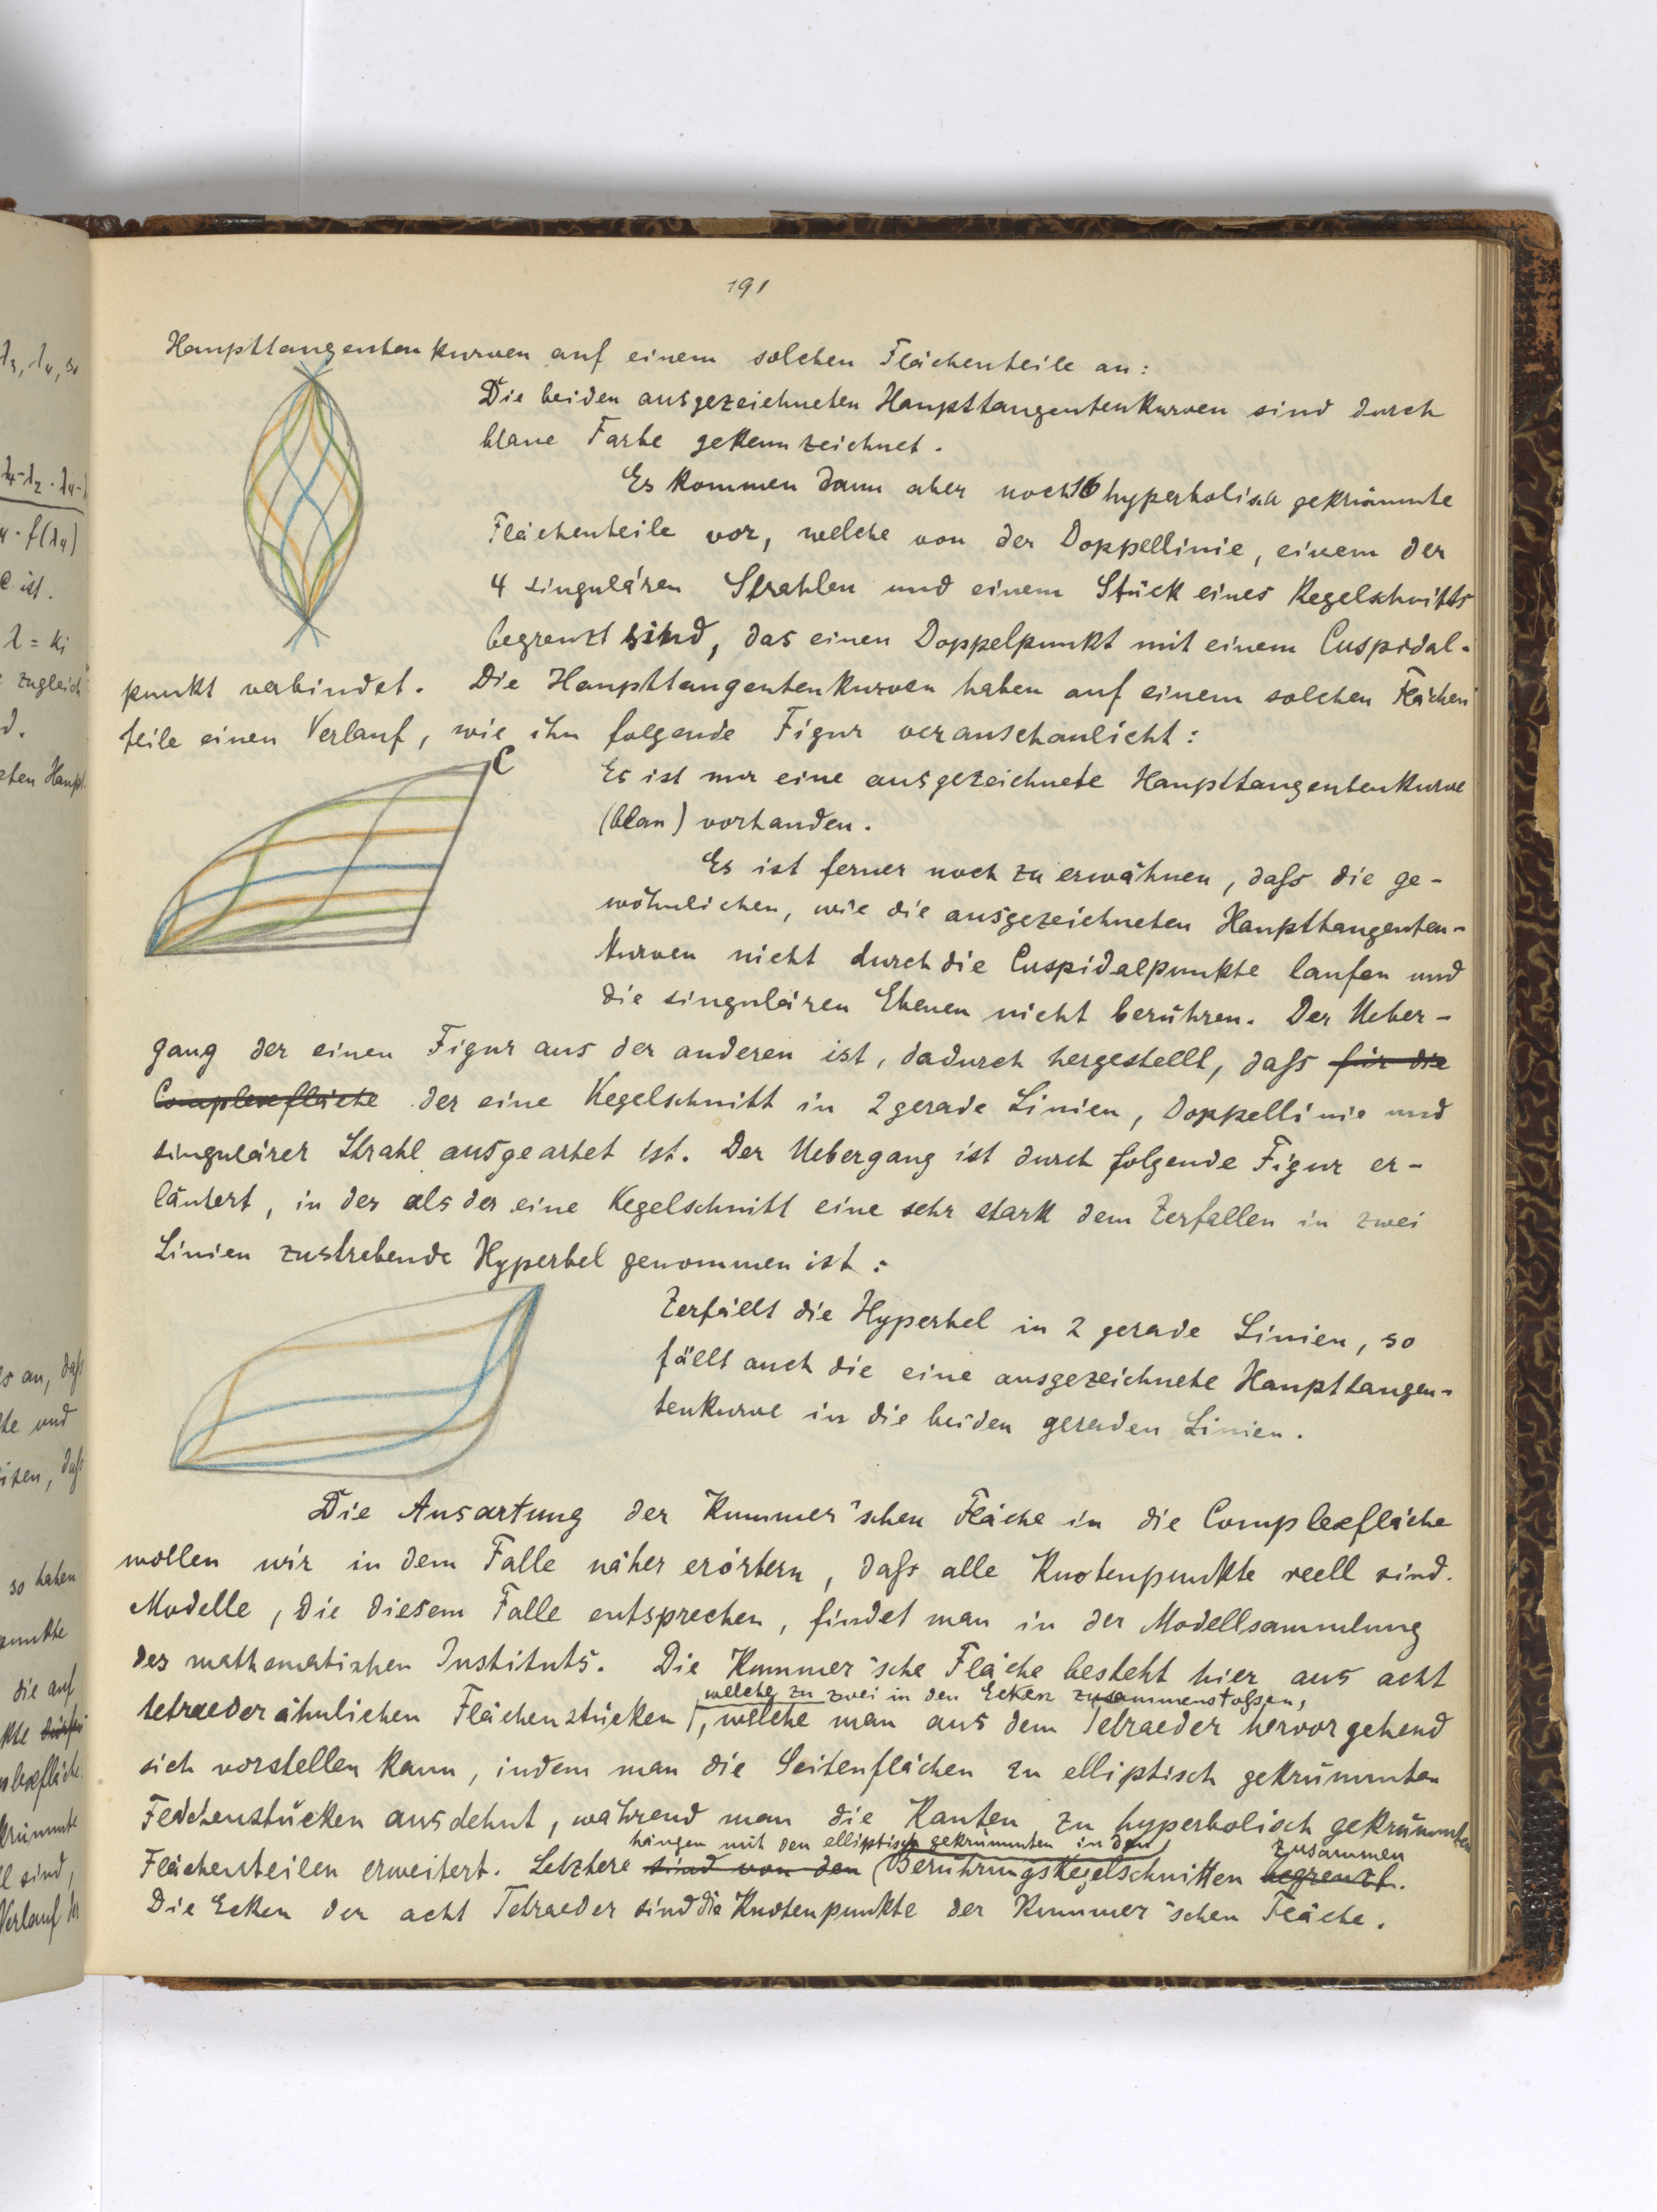 191
Haupttangentenkurven auf einem solchen Flächenteile an:
Die beiden ausgezeichneten Haupttangentenkurven sind durch
blaue Farbe gekennzeichnet.
Es kommen dann aber noch 16 hyperbolisch gekrümmte
Flächenteile vor, welche von der Doppellinie, einem der
4 singulären Strahlen und einem Stück eines Kegelschnitts
begrenzt sind, das einen Doppelpunkt mit einem Cuspidal-
punkt verbindet. Die Haupttangentenkurven haben auf einem solchen Flächen
teile einen Verlauf, wie ihn folgende Figur veranschaulicht:
C
Es ist nur eine ausgezeichnete Haupttangentenkurve
(blau) vorhanden.
Es ist ferner noch zu erwähnen, daſs die ge-
wöhnlichen, wie die ausgezeichneten Haupttangenten-
kurven nicht durch die Cuspidalpunkte laufen und
die singulären Ebenen nicht berühren. Der Ueber-
gang der einen Figur aus der anderen ist, dadurch hergestellt, daſs für die
Complexfläche der eine Kegelschnitt in 2 gerade Linien, Doppellinie und
singulärer Strahl ausgeartet ist. Der Uebergang ist durch folgende Figur er-
läutert, in der als der eine Kegelschnitt eine sehr stark dem Zerfallen in zwei
Linien zustrebende Hyperbel genommen ist:
Zerfällt die Hyperbel in 2 gerade Linien, so
fällt auch die eine ausgezeichnete Haupttangen-
tenkurve in die beiden geraden Linien.
Die Ausartung der Kummer'schen Fläche in die Complexfläche
wollen wir in dem Falle näher erörtern, daſs alle Knotenpunkte reell sind.
Modelle, die diesem Falle entsprechen, findet man in der Modellsammlung
des mathematischen Instituts. Die Kummer'sche Fläche besteht hier aus acht
welche zu zwei in den Ecken zusammenstoſsen,
tetraederähnlichen Flächenstücken, welche man aus dem Tetraeder hervorgehend
sich vorstellen kann, indem man die Seitenflächen zu elliptisch gekrümmten
Flächenstücken ausdehnt, während man die Kanten zu hyperbolisch gekrümmten
hängen mit den elliptisch gekrümmten in den zusammen
Flächenteilen erweitert. Letztere sind von den Berührungskegelschnitten begrenzt.
Die Ecken der acht Tetraeder sind die Knotenpunkte der Kummer'schen Fläche.